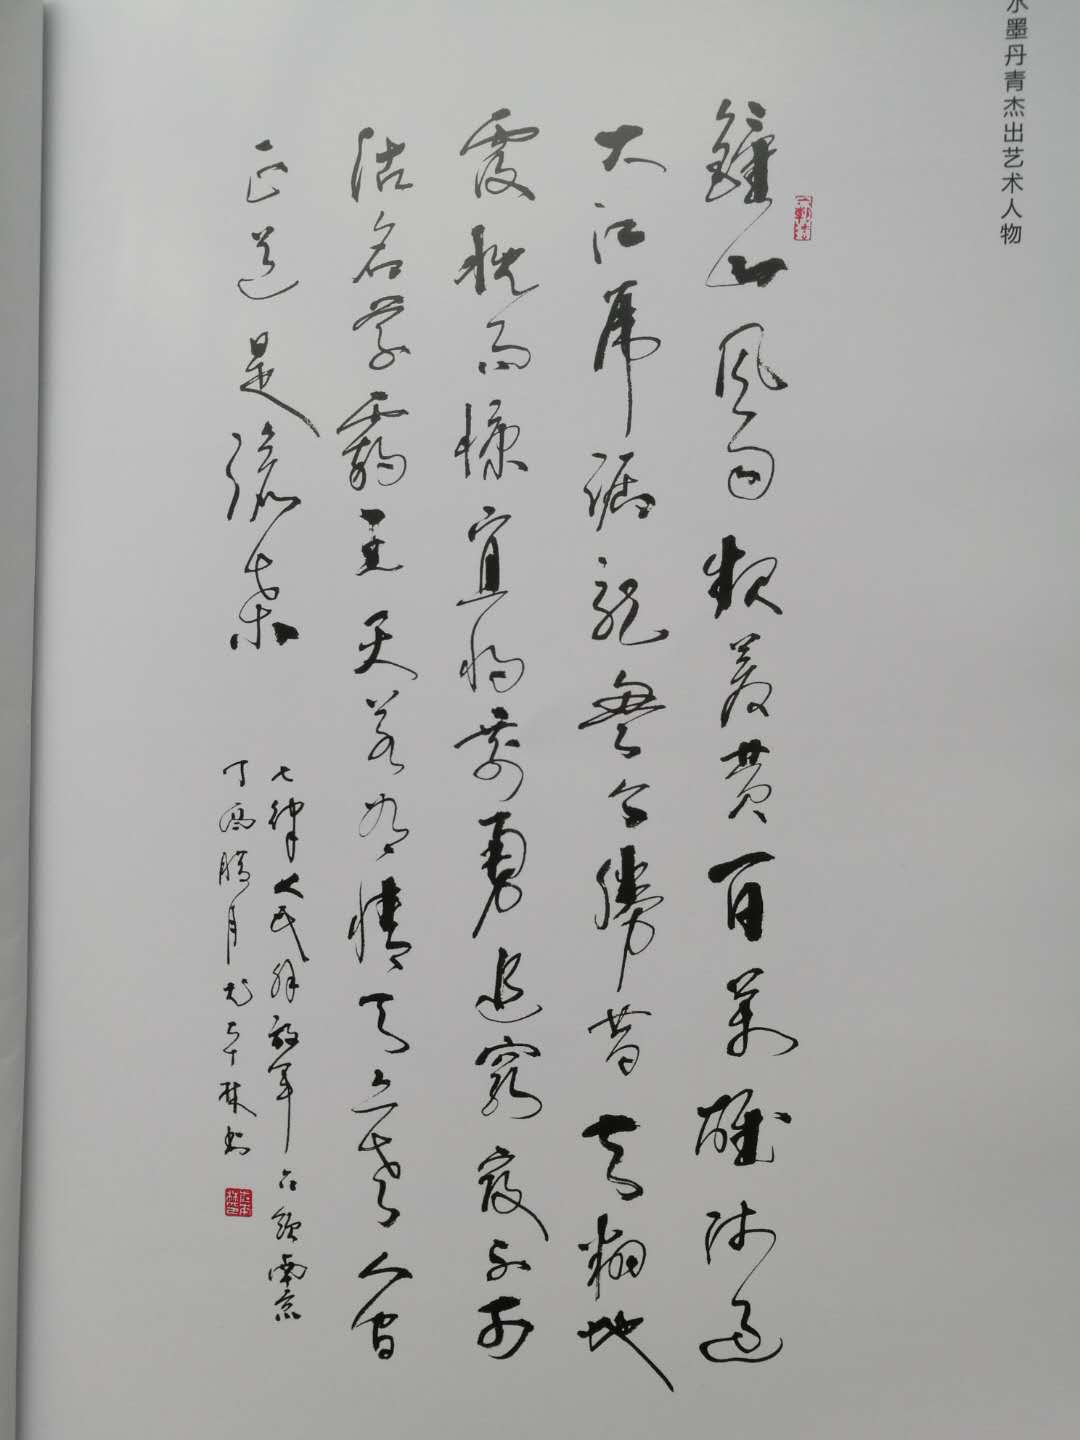 水墨丹青杰出艺术人物
鐘山风雨起苍黄百萬雄师过
大江虎踞龍盤今勝昔天翻地
覆慨而慷宜将剩勇追窮寇不可
沽名学霸王天若有情天亦老人间
正道是滄桑
七律人民解放军占领南京
丁酉腊月尤本林书